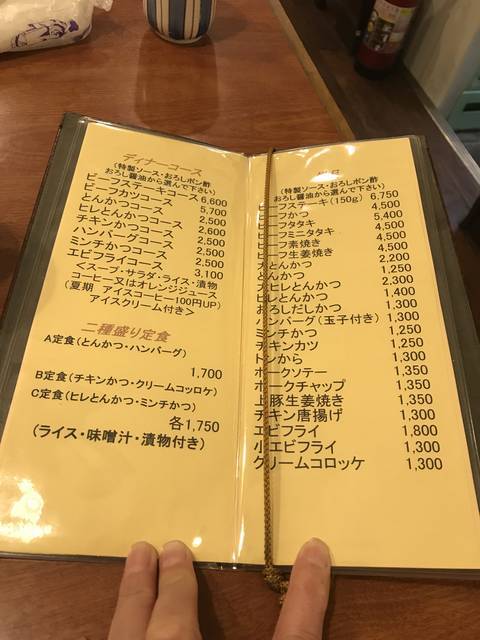 ディナーコース
(特製ソース・おろしポン酢
おろし醤油から選んで下さい)
ビーフステーキコース 6,600
ビーフカツコース 5,700
とんかつコース 2,500
ヒレとんかつコース 2,600
チキンかつコース 2,500
ハンバーグコース 2,500
ミンチかつコース 2,500
エビフライコース 3,100
<スープ・サラダ・ライス・漬物
コーヒー又はオレンジジュース
(夏期 アイスコーヒー100円UP)
アイスクリーム付き>
二種盛り定食
A定食(とんかつ・ハンバーグ)
1,700
B定食(チキンかつ・クリームコロッケ)
C定食(ヒレとんかつ・ミンチかつ)
各1,750
(ライス・味噌汁・漬物付き)
(特製ソース・おろしポン酢
おろし醤油から選んで下さい)
ビーフステーキ(150g) 6,750
ビーフかつ 4,500
ビーフタタキ 5,400
ビーフミニタタキ 4,500
ビーフ素焼き 4,500
ビーフ生姜焼き 4,500
大とんかつ 2,200
とんかつ 1,250
大ヒレとんかつ 2,300
ヒレとんかつ 1,400
おろしだしかつ 1,300
ハンバーグ(玉子付き) 1,300
ミンチかつ 1,250
チキンカツ 1,250
トンから 1,300
ポークソテー 1,350
ポークチャップ 1,350
上豚生姜焼き 1,350
チキン唐揚げ 1,300
エビフライ 1,800
小エビフライ 1,300
クリームコロッケ 1,300